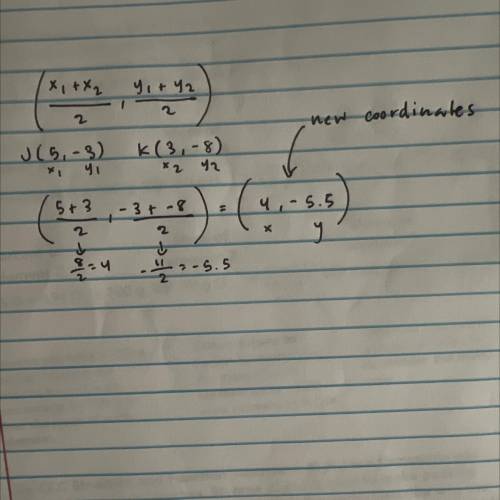 (x₁ + x₂ / 2 , y₁ + y₂ / 2)
new coordinates
J(5, -3) K(3, -8)
x₁ y₁ x₂ y₂
(5+3 / 2 , -3 + -8 / 2) = (4, -5.5)
x y
8/2 = 4 -11/2 = -5.5